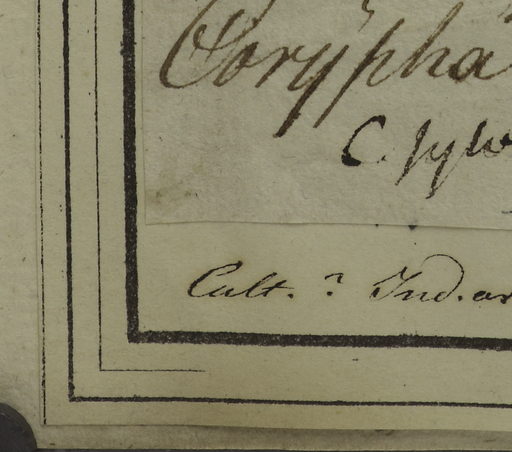 Corypha
C. sylv
Cult. ? Ind. or